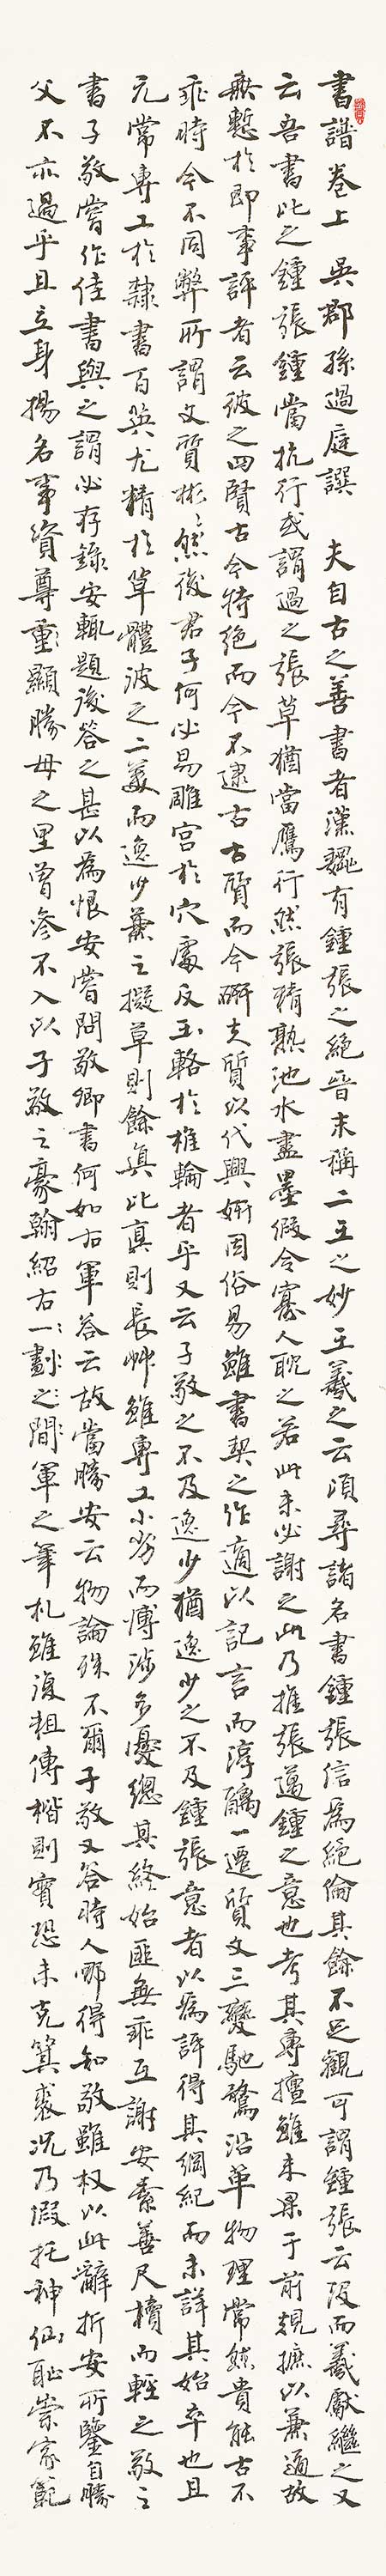 書譜卷上 吳郡孫過庭譔 夫自古之善書者漢魏有鍾張之絕晉末稱二王之妙王羲之云頃尋諸名書鍾張信為絕倫其餘不足觀可謂鍾張云沒而羲獻繼之又
云吾書比之鍾張鍾當抗行或謂過之張草猶當雁行然張精熟池水盡墨假令寡人耽之若此未必謝之此乃推張邁鍾之意也考其專擅雖未果于前規摭以兼通故
無慙於即事評者云彼之四賢古今特絕而今不逮古古質而今妍夫質以代興妍因俗易雖書契之作適以記言而淳醨一遷質文三變馳騖沿革物理常然貴能古不
乖時今不同弊所謂文質彬彬然後君子何必易雕宮於穴處反玉輅於椎輪者乎又云子敬之不及逸少猶逸少之不及鍾張意者以為評得其綱紀而未詳其始卒也且
元常專工於隸書百英尤精於草體彼之二美而逸少兼之擬草則餘真比真則長草雖專工小劣而博涉多優總其終始匪無乖互謝安素善尺牘而輕之敬之
書子敬嘗作佳書與之謂必存錄安輒題後答之甚以為恨安嘗問敬卿書何如右軍答云故當勝安云物論殊不爾子敬又答時人那得知敬雖權以此辭折安所鑒自勝
父不亦過乎且立身揚名事資尊重顯勝母之里曾參不入以子敬之豪翰紹右一劃之間軍之筆札雖復粗傳楷則實恐未克箕裘況乃假托神仙恥崇家範